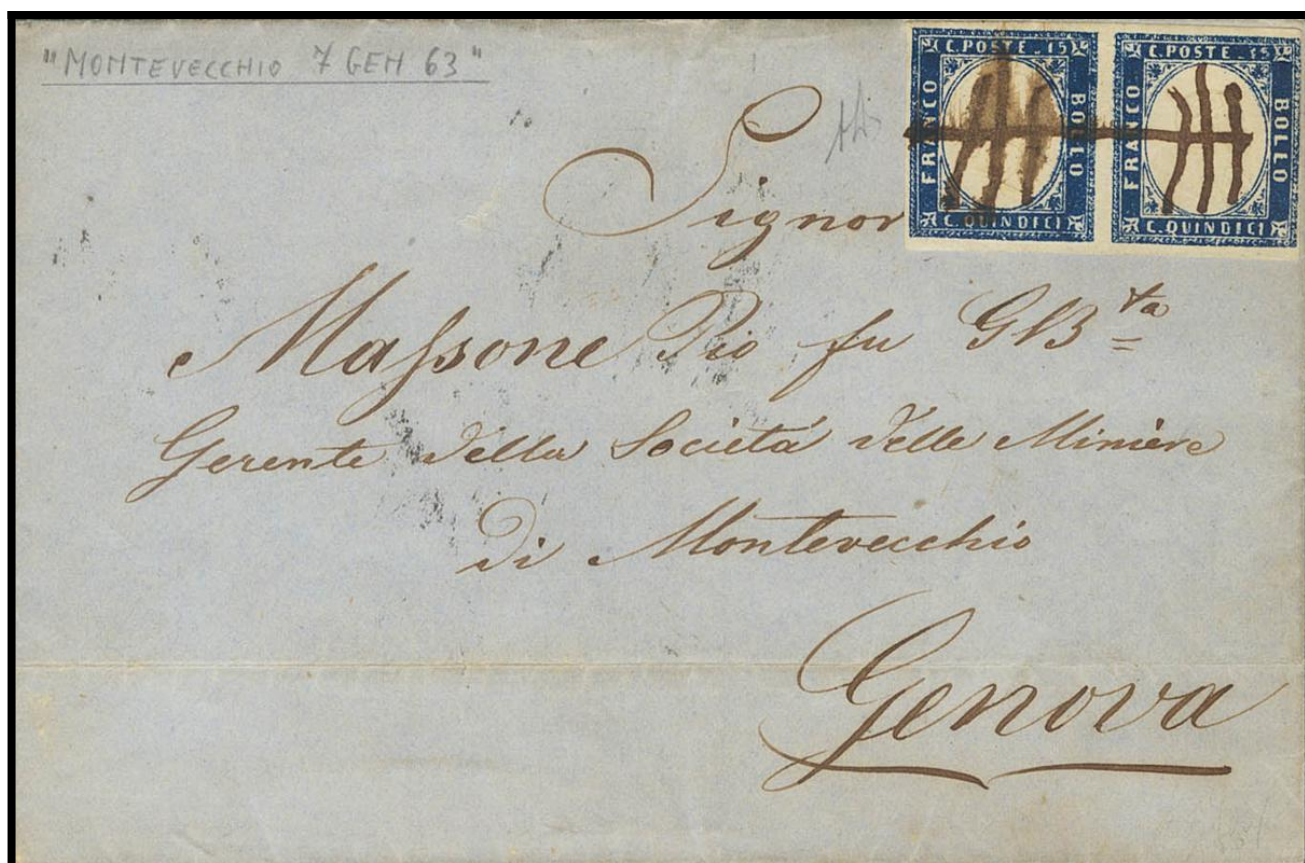 "MONTEVECCHIO 7 GEN 63"
C. POSTE. 15
FRANCO
BOLLO
C. QUINDICI
C. POSTE. 15
FRANCO
BOLLO
C. QUINDICI
Signor
Massone Pio fu GB ta
Gerente della Società delle Minière
di Montevecchio
Genova